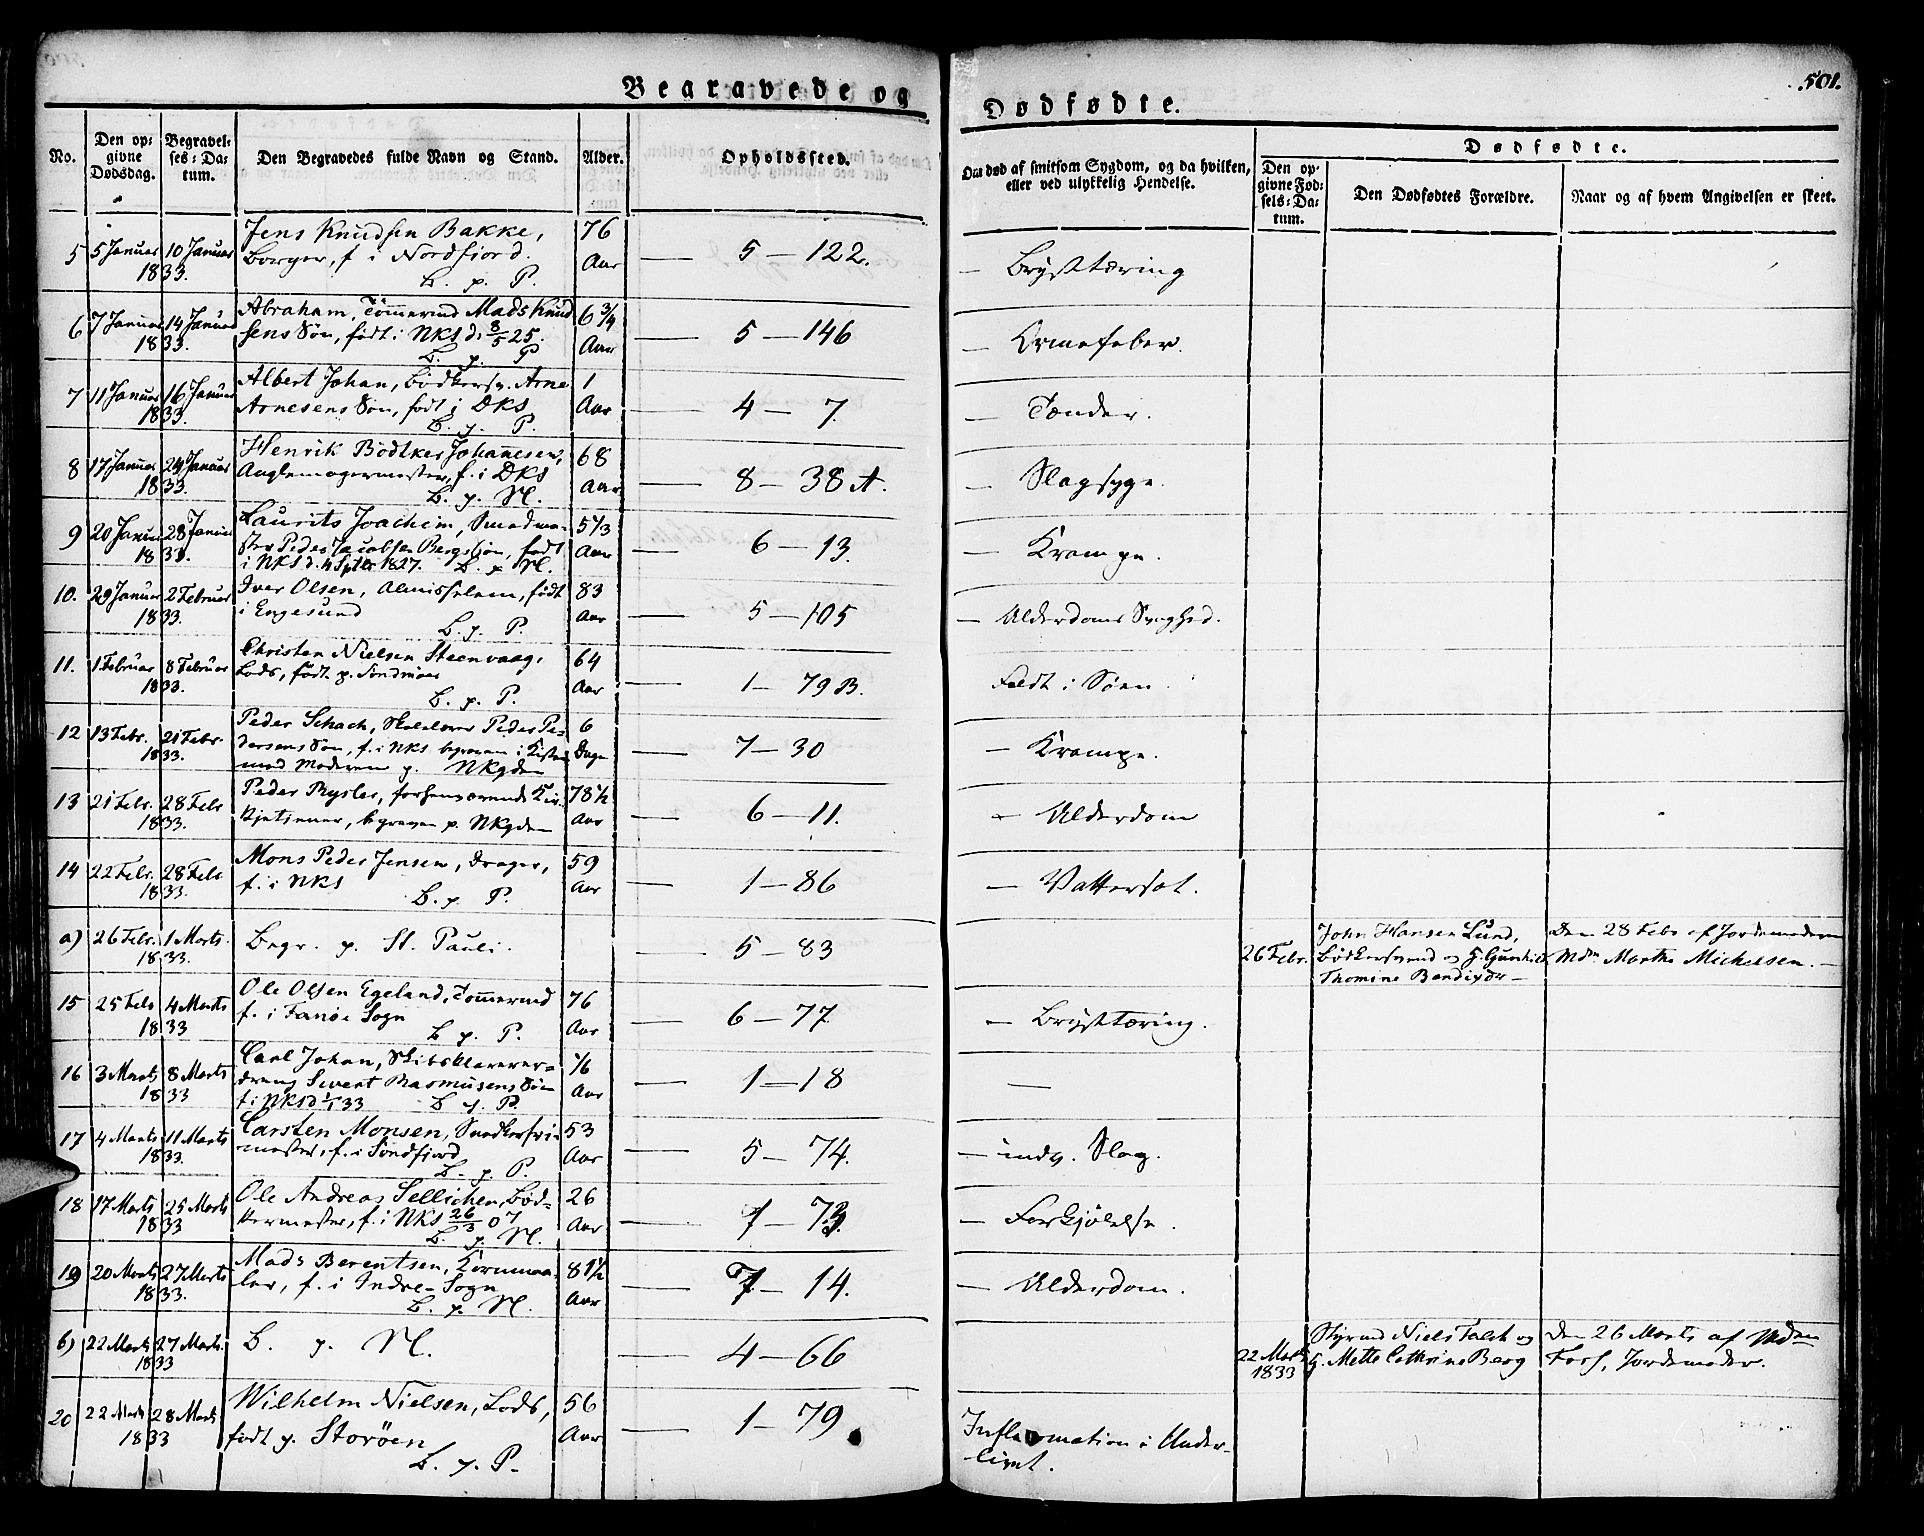 Begravede og Dødfødte.
501.
No. Den opgivne Dødsdag. Begravelses-Datum. Den Begravedes fulde Navn og Stand. Alder. Opholdssted. Om død af smitsom Sygdom, og da hvilken, eller ved ulykkelig Hendelse.
Dødfødte.
Den opgivne Fødsels-Datum. Den Dødfødtes Forældre. Naar og af hvem Angivelsen er skeet.
5 5 Januar 10 Januar 1833. Jens Knudsen Bakke, Borger, f. i Nordfjord. B. p. P. 76 Aar — 5 — 122. — Brysttæring
6 7 Januar 14 Januar 1833. Abraham, Tømmermd Mads Knudsens Søn, født i NKS d. 8/5 25. B. p. P 6 3/4 Aar — 5 — 146 — Ormefeber.
7 11 Januar 16 Januar 1833. Albert Johan, Bødkersv. Arne Arnesens Søn, født i DKS B. p. P. 1 Aar — 4 — 7. — Tænder.
8 17 Januar 24 Januar 1833. Henrik Bødtker Johannesen, f. i DKS B. p. M. 68 Aar — 8 — 38 A. — Slagsyge.
9 20 Januar 28 Januar 1833. Laurits Joachim, Peder Jacobsen Bergs Søn, født i NKS d. 4 Septbr 1827. B. p. M. 5 1/3 Aar — 6 — 13. — Krampe.
10. 29 Januar 2 Februar 1833. Iver Olsen, Almisselem, født i Engesund B. p. P. 83 Aar — 5 — 105 — Alderdoms Svaghed.
11. 1 Februar 8 Februar 1833. Christen Nielsen Steenvaag, Lods, født p. Søndmøer B. p. P. 64 Aar — 1 — 79 B. Faldt i Søen.
12 13 Febr. 21 Febr. 1833. Peder Schach, Peder Pedersens Søn, f. i NKS begraven i Kisten med Moderen p. NKgden 6 Dage — 7 — 30 — Krampe.
13 21 Febr. 28 Febr 1833. Peder forhenværende begraven p. NKgden 78 1/2 Aar — 6 — 11. — Alderdom
14 22 Febr. 28 Febr 1833. Mons Peder Jensen, Drager, f. i NKS B. p. P. 59 Aar — 1 — 86 — Vattersot.
a) 26 Febr. 1 Marts. 1833. Begr. p. St. Pauli. — 5 — 83 26 Febr. John Hansen Lund, Bødkersvend og H. Gunhild Thomine Bendixdr — Den 28 Febr af Jordemoderen Mdm Marthe Michelsen. —
15 25 Febr 4 Marts 1833 Ole Olsen Egeland, Tømmermd f. i Fanøe Sogn B. p. P. 76 Aar — 6 — 77 — Brysttæring.
16 3 Marts 8 Marts 1833 Carl Johan, Sivert Rasmusens Søn f. i NKS d 1/1 33 B. p. P. 1/6 Aar — 1 — 18 —
17 4 Marts 11 Marts 1833. Carsten Monsen, f. i Søndfjord B. p. P. 53 Aar — 5 — 74. — indv. Slag.
18 17 Marts 25 Marts 1833 Ole Andreas Sellichen, Bødkermester, f. i NKS 26/3 07 B. p. M. 26 Aar — 1 — 73 — Forkjølelse.
19 20 Marts 27 Marts 1833. Mads Berentsen, Kornmaaler, f. i Indre-Sogn B. p. M. 81 1/2 Aar — 7 — 14. — Alderdom.
b) 22 Marts 27 Marts. 1833 B. p. M. — 4 — 66 22 Marts 1833 Styrmd Niels Falch og H. Mette Cathrine Berg Den 26 Marts af Mdm Jordemoder.
20 22 Marts 28 Marts 1833 Wilhelm Nielsen, Lods, født p. Storøen B. p. P. 56 Aar — 1 — 79. Inflammation i Underlivet.